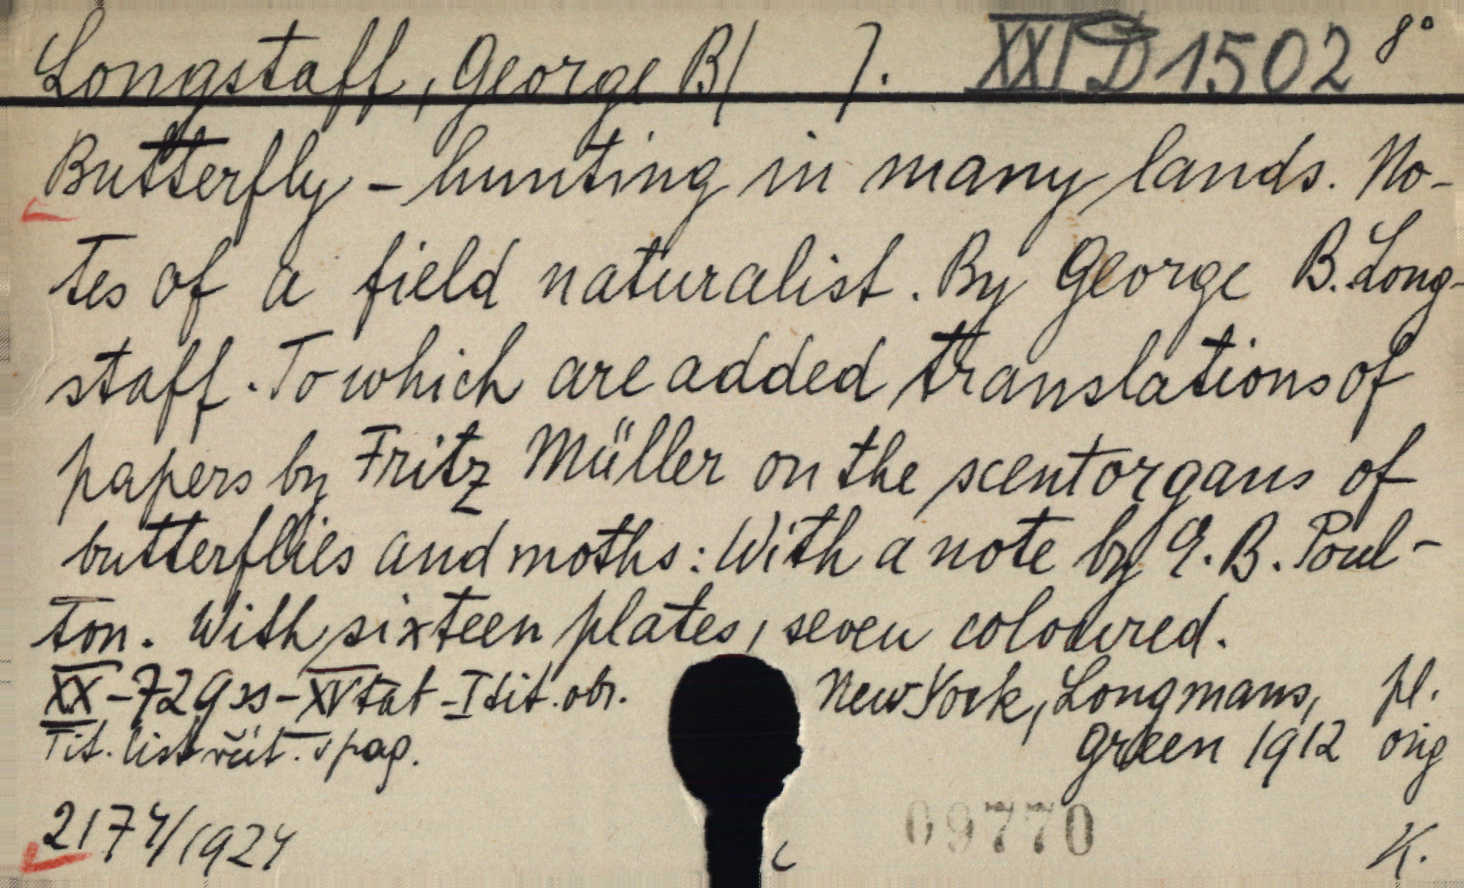 Longstaff, George B/ 7. XXI D 1502 8°
Butterfly - hunting in many lands. No-
tes of a field naturalist. By George B. Long-
staff. To which are added translations of
papers by Fritz Müller on the scentorgans of
butterflies and moths: With a note by E. B. Poul-
ton. With sixteen plates, seven coloured.
XX-729 ss-XV tab-I tit. obr. New York, Longmans, pl.
Tit. list včít. v pag. Green 1912 orig
2174/1924 09770 K.